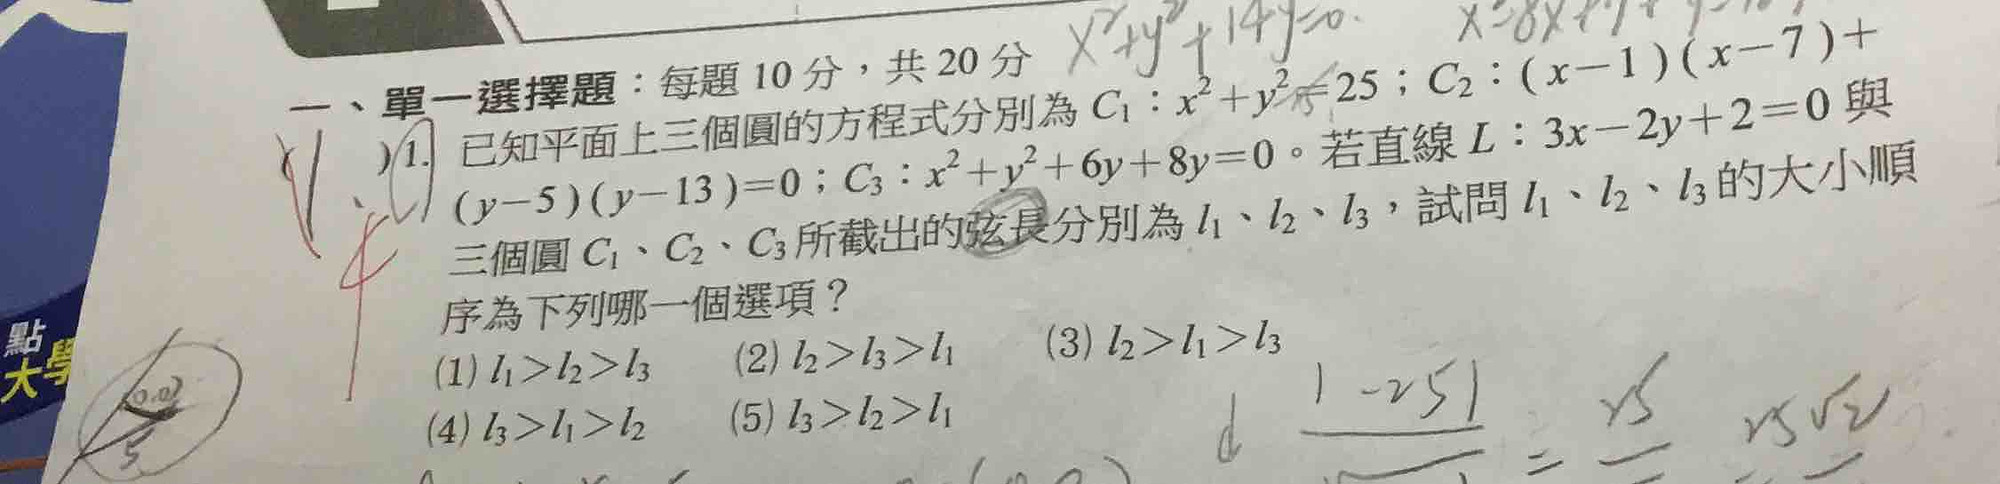 x²+y²+14y=0.
一、單一選擇題：每題 10 分，共 20 分
( )1. 已知平面上三個圓的方程式分別為 C₁：x²+y²=25；C₂：(x−1)(x−7)+
(y−5)(y−13)=0；C₃：x²+y²+6y+8y=0。若直線 L：3x−2y+2=0 與
三個圓 C₁、C₂、C₃所截出的弦長分別為 l₁、l₂、l₃，試問 l₁、l₂、l₃的大小順
序為下列哪一個選項？
(1) l₁>l₂>l₃ (2) l₂>l₃>l₁ (3) l₂>l₁>l₃
(4) l₃>l₁>l₂ (5) l₃>l₂>l₁
點
大學
4
5
d |-25|
= 25
25√2